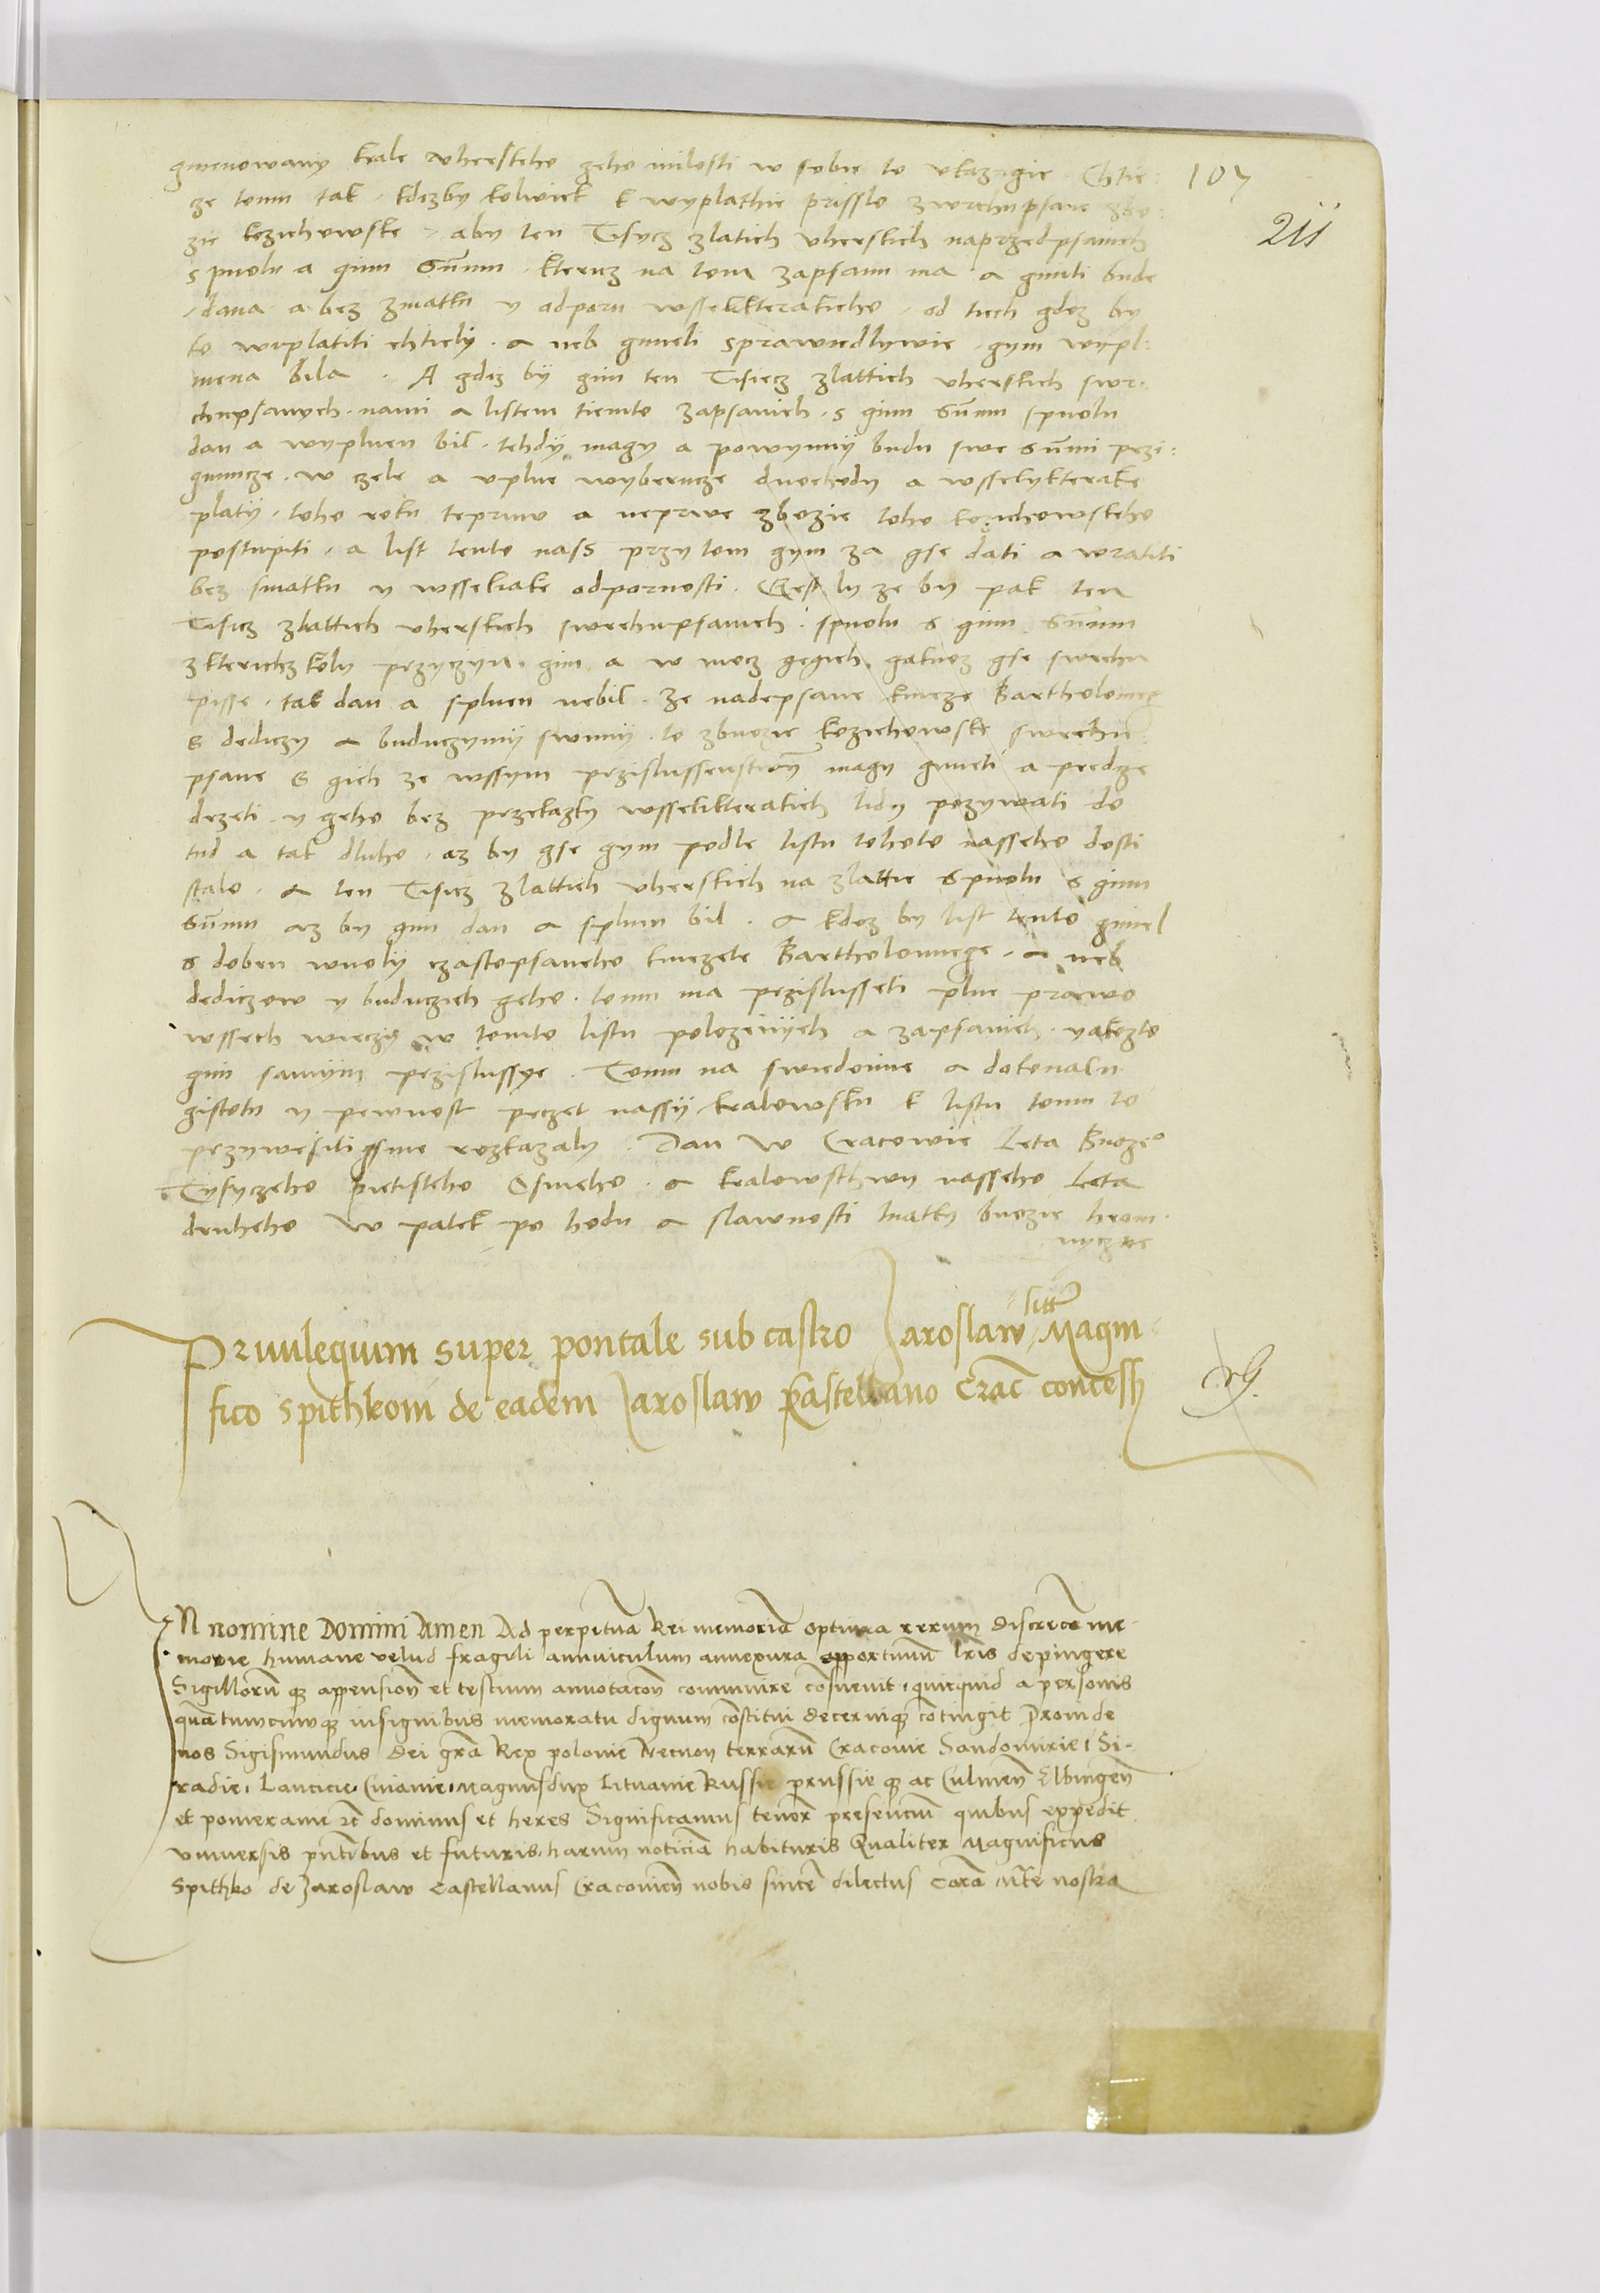 gmenowany krale vherskeho geho milosti w sobie to vkazugie. Chtie:
ze tomu tak. kdezby kolwiek k wyplathie prisslo zwrchupsane zbo:
zie kozichowske, aby ten Tisycz zlatich vherskich naprzedpsanich
spuolu a ginu summu. kteruz na tom zapsanu ma a gmiti bude
dana a bez zmatku y odporu wsselikterakieho, od tiech gdoz by
to wyplatiti chtiely. a neb gmieli sprawiedlywie. gym wypl:
niena bila. A gdiz by gim ten Tisicz zlattich vherskich swr:
chupsanych. nami a listem tiemto zapsanich. s ginu summu spuolu
dan a wyplnen bil. tehdy magy a powynny budu swe summi przi:
gmucze. w czele a vplne wyberucze duochody a wsselykterake
platy. toho roku tepruw a neprwe zbozie toho kozichowskeho
postupiti. a list tento nass przy tom gym za gse dati a wratiti
bez smatku y wsseliake odpornosti. Gest ly ze by pak ten
Tisicz zlattich vherskich swrchupsanich. spuolu s ginu summu
z kterichzkoly przyczyn. gim a w mocz gegich. gakoz gse swrchu
pisse. tak dan a splnen nebil. ze nadepsane knieze Bartholomieg
s dediczy a buduczymy swymy. to zbuozie kozichowske swrchu
psane s gich ze wssym przislussenstwym magy gmieti a predcze
drzeti. y geho bez przekazky wsselikterakich lidy pozywati do
tud a tak dluho. az by gse gym podle listu tohoto nasseho dosti
stalo. a ten Tisicz zlattich vherskich na zlattie spuolu s ginu
summu az by gim dan a splnen bil. a kdoz by list tento gmiel
s dobru wuoly czastopsaneho kniezete Bartholomiege. a neb
dediczow y buduczich geho. tomu ma przislusseti plne prawo
wssech wieczy w tomto listu polozenych a zapsanich. yakozto
gim samym przislussye. Tomu na swiedomie a dokonalu
gistotu y pewnost peczet nassy kralowsku k listu tomu to
przywesiti gsme rozkazaly. Dan w Cracowie Leta Buozeo
Tysyczeho pietisteho Osmeho. a kralowsthwy nasseho Leta
druheho w patek po hodu a slawnosti matky buozie hrom:
nyczne
107
211
Priuilegium super pontale sub castro Jaroslaw litt Magni
fico Spithkoni de eadem Jaroslaw Castellano Crac concess
IN nomine Domini Amen Ad perpetuã Rei memoriã optima rerum discrecõe me-
morie humane velud fragili amminiculum annexura opportunũ lris depingere
Sigillorũ q3 appensionẽ et testium annotacõẽ communire cõsueuit, quicquid a personis
quãtumcumq3 insignibus memoratu dignum constitui decerniq3 cõtingit Proinde
nos Sigismundus Dei grã Rex polonie Necnon terrarũ Cracouie Sandomirie, Si-
radie, Lancicie, Cuiauie, Magnusdux Lituanie Russie prussie q3 ac Culmeñ Elbingeñ
et pomeranie zc dominus et heres Significamus tenor̃ presenciũ quibus expedit
vniuersis pñtibus et futuris, harum noticiã habituris Qualiter Magnificus
Spithko de Jaroslaw Castellanus Cracouieñ nobis sincẽ dilectus Corã mte nostra